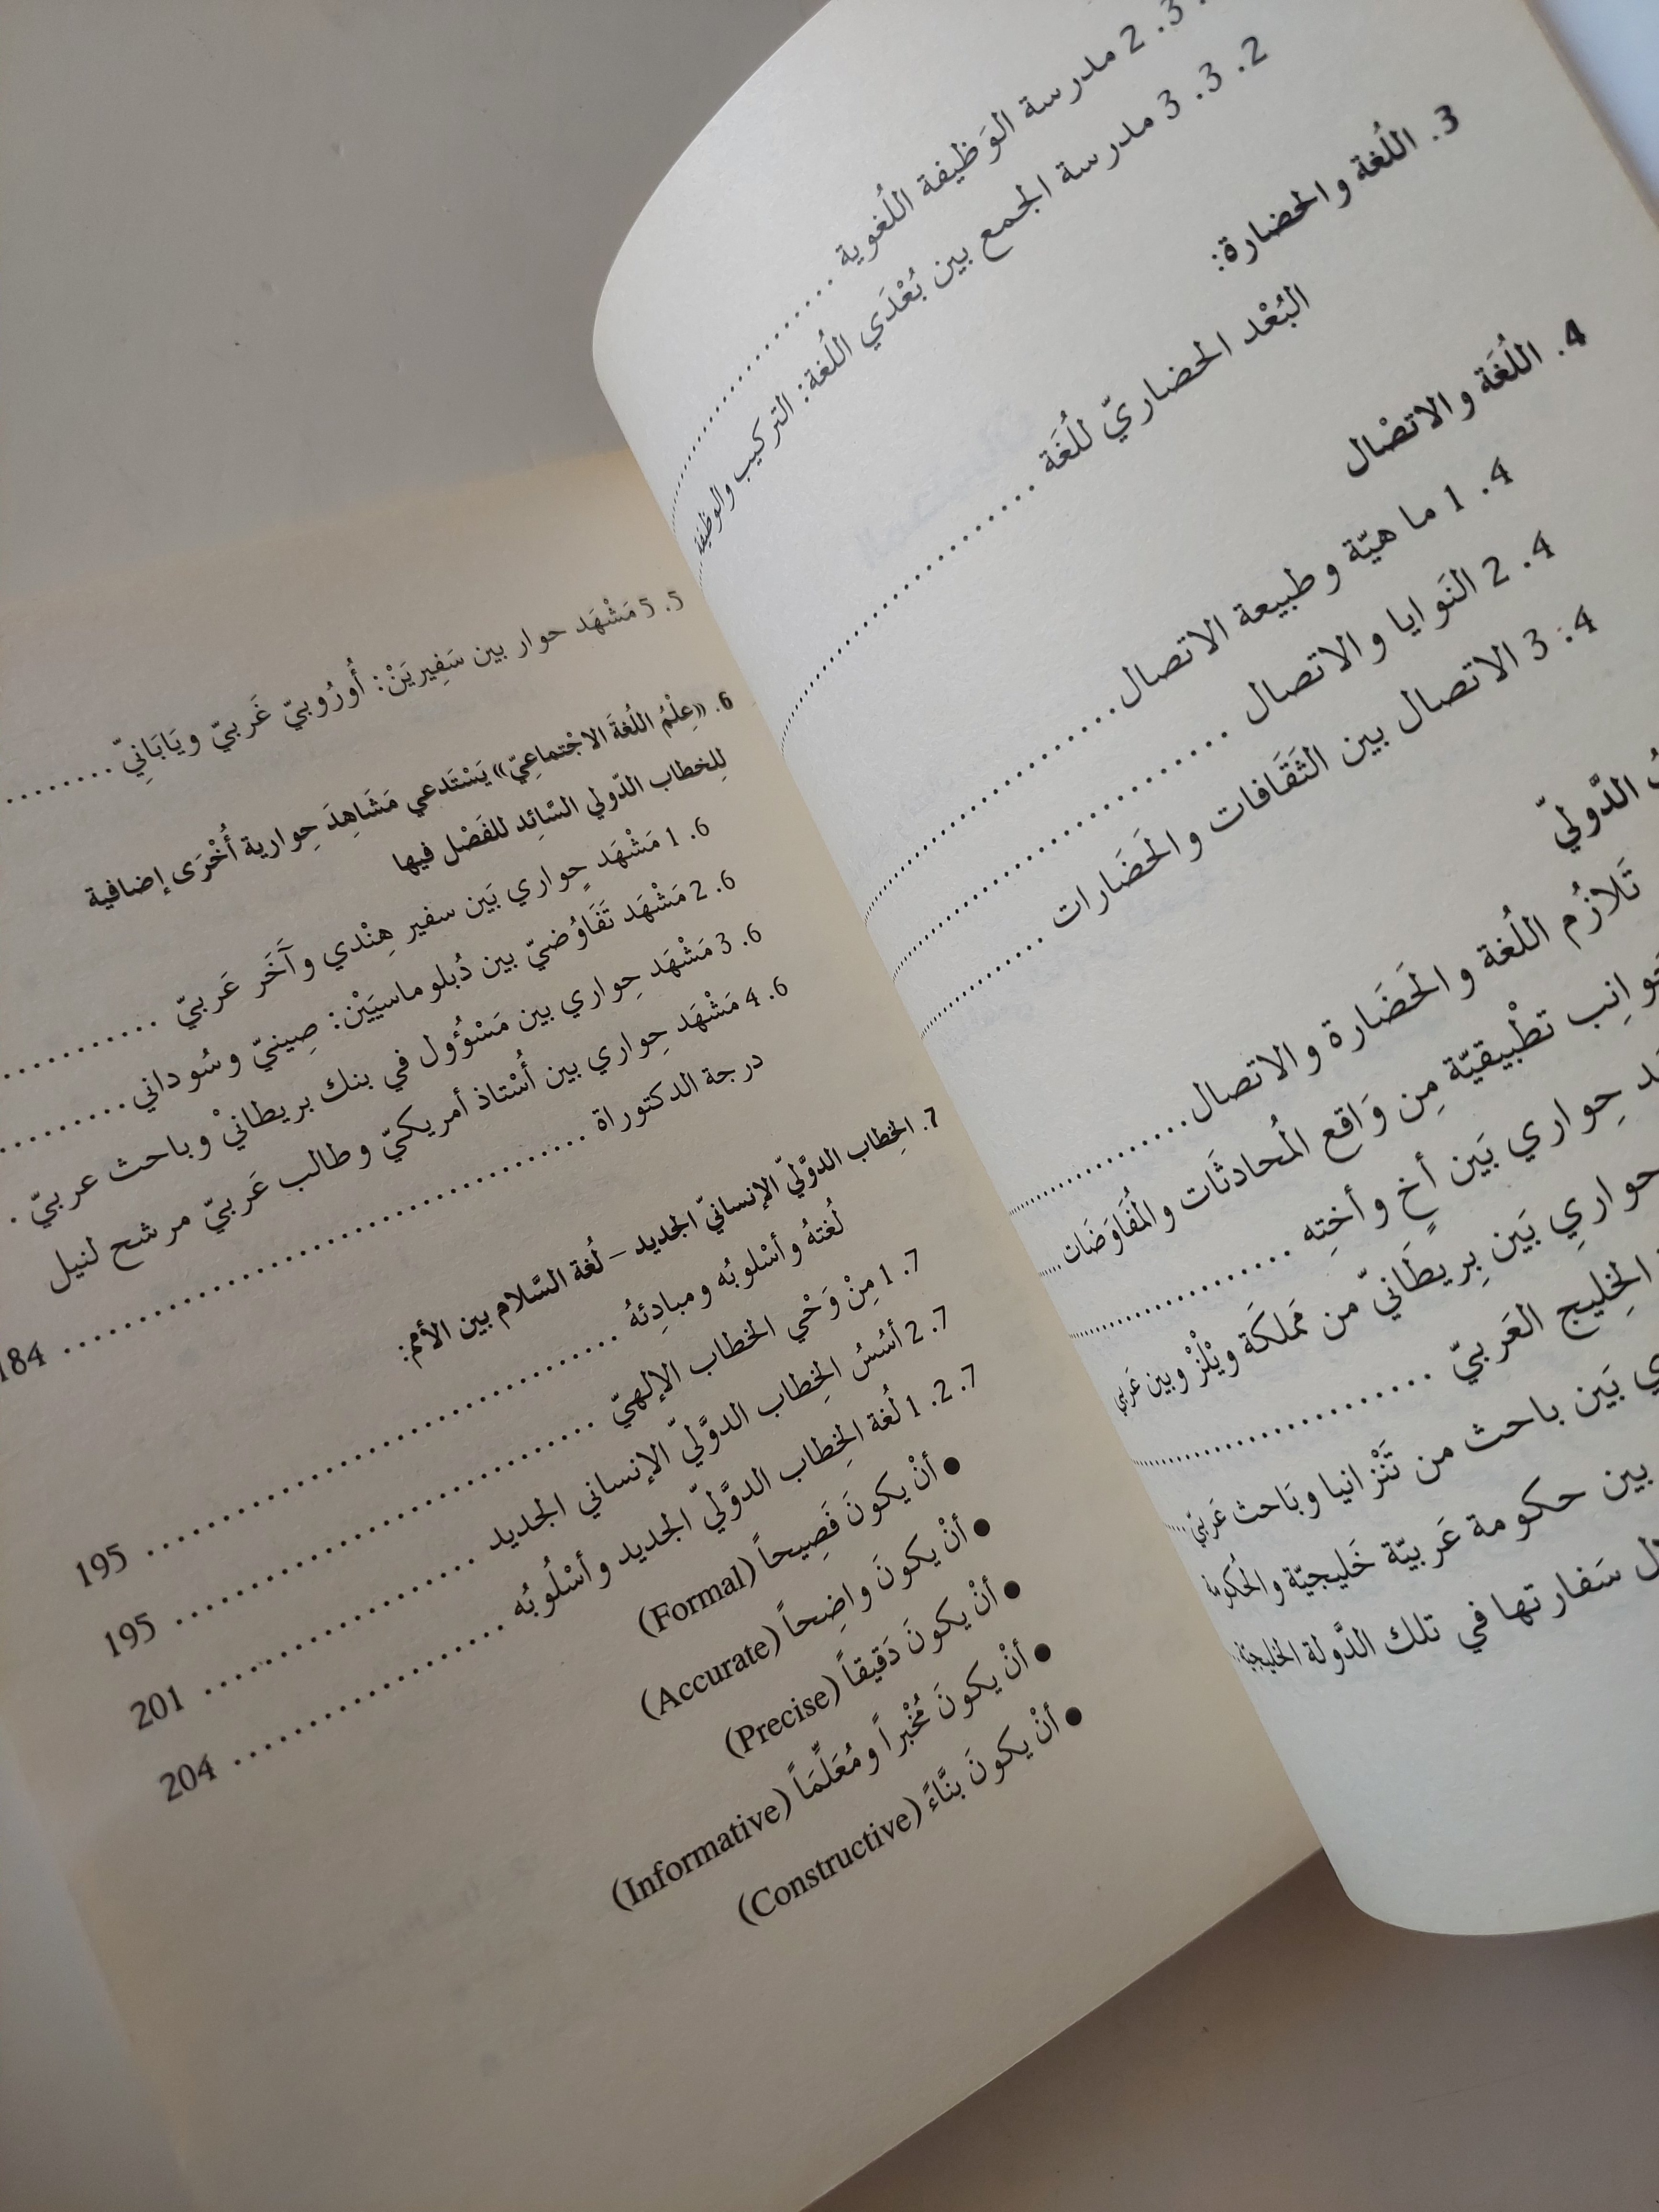 3. 2 مدرسة الوَظيفة اللُغوية ..........
2. 3. 3 مدرسة الجمع بين بُعْدَي اللُغة: التركيب والوظيفة
3. اللُغة والحضارة:
البُعْد الحضاريّ للُغَة ..........
4. اللُغَة والاتصْال
4. 1 ما هيّة وطبيعة الاتصال ..........
4. 2 النَوايا والاتصال ..........
4. 3 الاتصال بين الثَقَافات والحَضَارات ..........
الدَّوليّ
تَلازُم اللُغة والحَضَارة والاتصال ..........
تطْبيقيّة مِن وَاقع المُحادثَات والمُفَاوَضَات .....
حِواري بَين أخٍ وأختِه ..........
حواريِ بَين بِريطَانيّ من مَملكَة ويْلزْ وبين عَربي
الخِليج العَربيّ ..........
بَين باحث من تَنْزانيا وبَاحث عَربيّ .....
بين حكومة عَربيّة خَليجيّة والحُكومة
سَفارتها في تلك الدَّولة الخليجيّة ..
5. 5 مَشْهَد حوار بين سَفِيريَنْ: أُورُوبيّ غَربيّ ويَابَانِيّ ........
6. «عِلْمُ اللُغَة الاجْتماعِيّ» يَسْتَدعي مَشَاهِدَ حِوارية أُخْرَى إضافية
لِلخطاب الدّولي السَّائِد للفَصْل فيها
6. 1 مَشْهَد حِواري بَين سفير هِنْدي وآَخَر عَربيّ ..........
6. 2 مَشْهَد تَفَاوُضيّ بين دُبلوماسيَيْن: صِينيّ وسُوداني ..........
6. 3 مَشْهَد حِواري بين مَسْؤُول في بنك بريطانيْ وباحث عربيّ .
6. 4 مَشْهَد حِواري بين أُسْتاذ أمريكيّ وطالب عَربيّ مرشح لنيل
درجة الدكتوراة .......... 184
7. الخِطاب الدوَّليّ الإنسانيّ الجديد - لُغة السَّلام بين الأمم:
لُغتهُ وأسْلوبُه ومبادِئهُ .......... 195
7. 1 مِنْ وَحْي الخطاب الإلهيّ .......... 195
7. 2 أسُسُ الخِطاب الدوَّليّ الإنساني الجديد .......... 201
7. 2. 1 لُغة الخِطاب الدوَّليّ الجديد وأسْلُوبُه .......... 204
● أنْ يكونَ فَصِيحاً (Formal)
● أنْ يكونَ واضِحاً (Accurate)
● أنْ يكونَ دَقيقاً (Precise)
● أنْ يكونَ مُخْبراً ومُعَلِّمَاً (Informative)
● أنْ يكونَ بنَّاءً (Constructive)